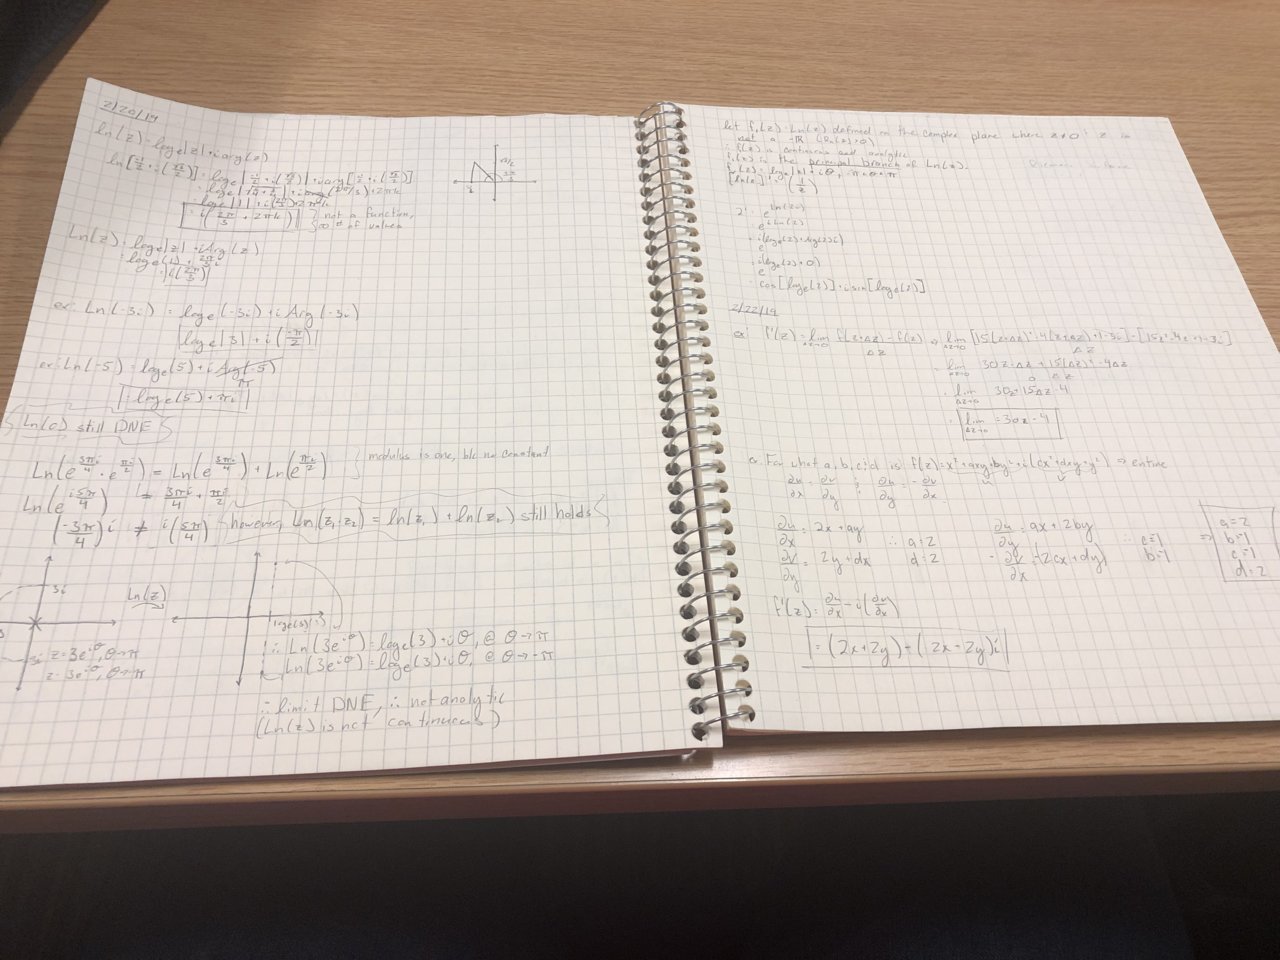 2/20/19
ln(z) = logₑ|z| + i arg(z)
ln[-1/2 + i(√3/2)] = logₑ|-1/2 + i(√3/2)| + i arg[-1/2 + i(√3/2)]
= i(2π/3 + 2πk) } not a function,
∞ # of values
Ln(z) = logₑ|z| + i Arg(z)
= logₑ(1) + 2π/3 i
= i(2π/3)
ex: Ln(-3i) = logₑ(-3i) + i Arg(-3i)
logₑ|3| + i(-π/2)
ex: Ln(-5) = logₑ(5) + i Arg(-5)
π
= logₑ(5) + πi
Ln(0) still DNE
Ln(e^(3πi/4) · e^(πi/2)) = Ln(e^(3πi/4)) + Ln(e^(πi/2)) { modulus is one, b/c no constant
Ln(e^(i5π/4)) = 3πi/4 + πi/2
(-3π/4)i ≠ i(5π/4) { however, ln(z₁·z₂) = ln(z₁) + ln(z₂) still holds
3i
Ln(z)
logₑ(3)
-3i
z = 3e^(iθ), θ→π
z = 3e^(iθ), θ→-π
∴ Ln(3e^(iθ)) = logₑ(3) + iθ, @ θ→π
Ln(3e^(iθ)) = logₑ(3) + iθ, @ θ→-π
∴ limit DNE, ∴ not analytic
(Ln(z) is not continuous)
let f₁(z) = Ln(z) defined on the complex plane where z ≠ 0 ; z is
not a -ℝ
∴ f(z) is continuous and analytic
f₁(z) is the principal branch of ln(z).
f₁(z) = logₑ|z| + iθ, -π<θ<π
[Ln(z)]' = (1/z)
2^i = e^(Ln(2^i))
e^(i Ln(2))
= e^(i(logₑ(2) + Arg(2)i))
= e^(i(logₑ(2) + 0))
= cos[logₑ(2)] + i sin[logₑ(2)]
2/22/19
ex: f'(z) = lim Δz→0 f(z+Δz) - f(z) / Δz ⇒ lim Δz→0 [15(z+Δz)² - 4(z+Δz) + 1-3i] - [15z² - 4z + 1-3i] / Δz
= lim Δz→0 30z·Δz + 15(Δz)² - 4Δz / Δz
= lim Δz→0 30z + 15Δz - 4
= lim Δz→0 = 30z - 4
ex: For what a, b, c, d is f(z) = x² + axy + by² + i(cx² + dxy + y²) ⇒ entire
∂u/∂x = ∂v/∂y ; ∂u/∂y = -∂v/∂x
∂u/∂x = 2x + ay ∴ a = 2 ∂u/∂y = ax + 2by ∴ c = -1
∂v/∂y = 2y + dx d = 2 -∂v/∂x = -(2cx + dy) b = -1
⇒ a = 2
b = -1
c = -1
d = 2
f'(z) = ∂u/∂x - i(∂u/∂x)
= (2x + 2y) + (-2x + 2y)i